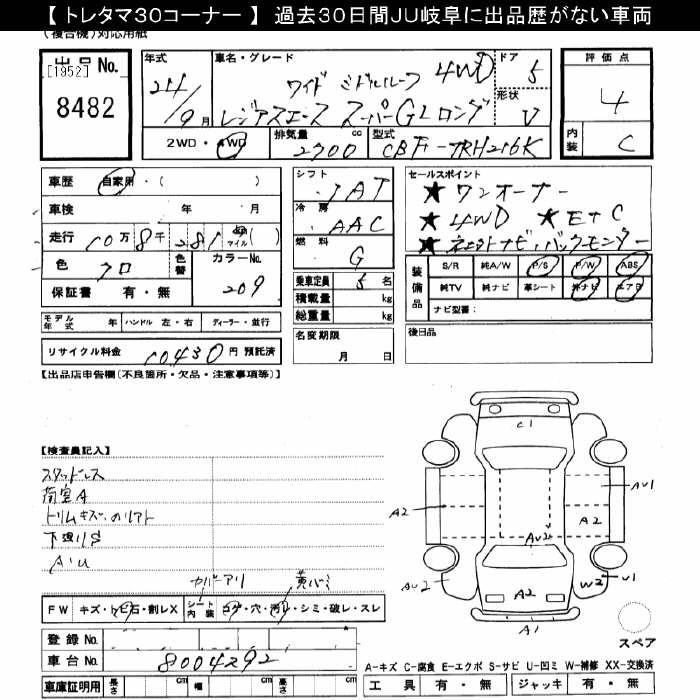 【 トレタマ30コーナー 】 過去30日間JU岐阜に出品歴がない車両
(複合機)対応用紙
出品No.
[1952]
8482
年式
24/9月
車名・グレード
ワイド ミドルルーフ 4WD
レジアスエース スーパーGL ロング
ドア
5
形状
V
2WD・4WD
排気量 2700 cc
型式 CBF-TRH216K
評価点
4
内装 C
車歴 自家用・( )
車検 年 月
走行 10万8千281 km マイル ( )
色 クロ
色替
カラーNo.
209
保証書 有・無
モデル年式 年 ハンドル 左・右 ディーラー・並行
リサイクル料金 10430 円 預託済
シフト
IAT
冷房
AAC
燃料
G
乗車定員 5 名
積載量 kg
総重量 kg
名変期限
月 日
セールスポイント
★ワンオーナー
★4WD ★ETC
★ナビ・バックモンター
装備品
S/R 純A/W P/S P/W ABS
純TV 純ナビ 革シート 外ナビ エアB
ナビ型番:
後日品
【出品店申告欄(不良箇所・欠品・注意事項等)】
【検査員記入】
スタッドレス
荷室A
トリムキズ・
下廻りS
A・U
カバーアリ
FW キズ・トビ石・割レX
シート内装 コゲ・穴・汚レ・シミ・破レ・スレ
登録No.
車台No. 8004292
車庫証明用 長さ cm 幅 cm 高さ cm
C1
AU1
A2
A2
AU2
AU2
A2
W2
U1
A1
スペア
A-キズ C-腐食 E-エクボ S-サビ U-凹ミ W-補修 XX-交換済
工具 有・無 ジャッキ 有・無